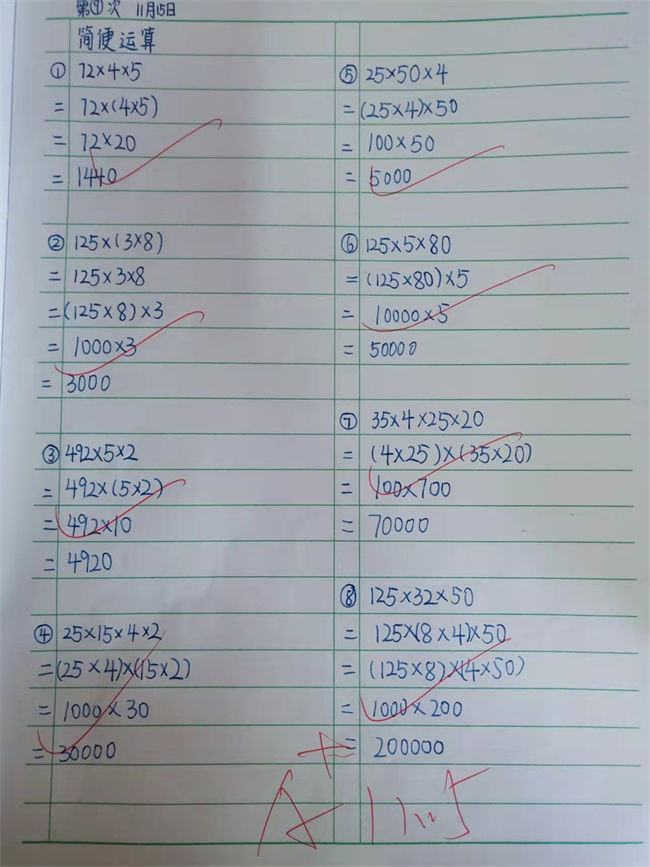 第9次 11月15日
简便运算
① 72×4×5
= 72×(4×5)
= 72×20
= 1440
② 125×(3×8)
= 125×3×8
=(125×8)×3
= 1000×3
= 3000
③ 492×5×2
= 492×(5×2)
= 492×10
= 4920
④ 25×15×4×2
=(25×4)×(15×2)
= 1000×30
= 30000
⑤ 25×50×4
=(25×4)×50
= 100×50
= 5000
⑥ 125×5×80
=(125×80)×5
= 10000×5
= 50000
⑦ 35×4×25×20
=(4×25)×(35×20)
= 100×700
= 70000
⑧ 125×32×50
= 125×(8×4)×50
=(125×8)×(4×50)
= 1000×200
= 200000
A+ 11.15